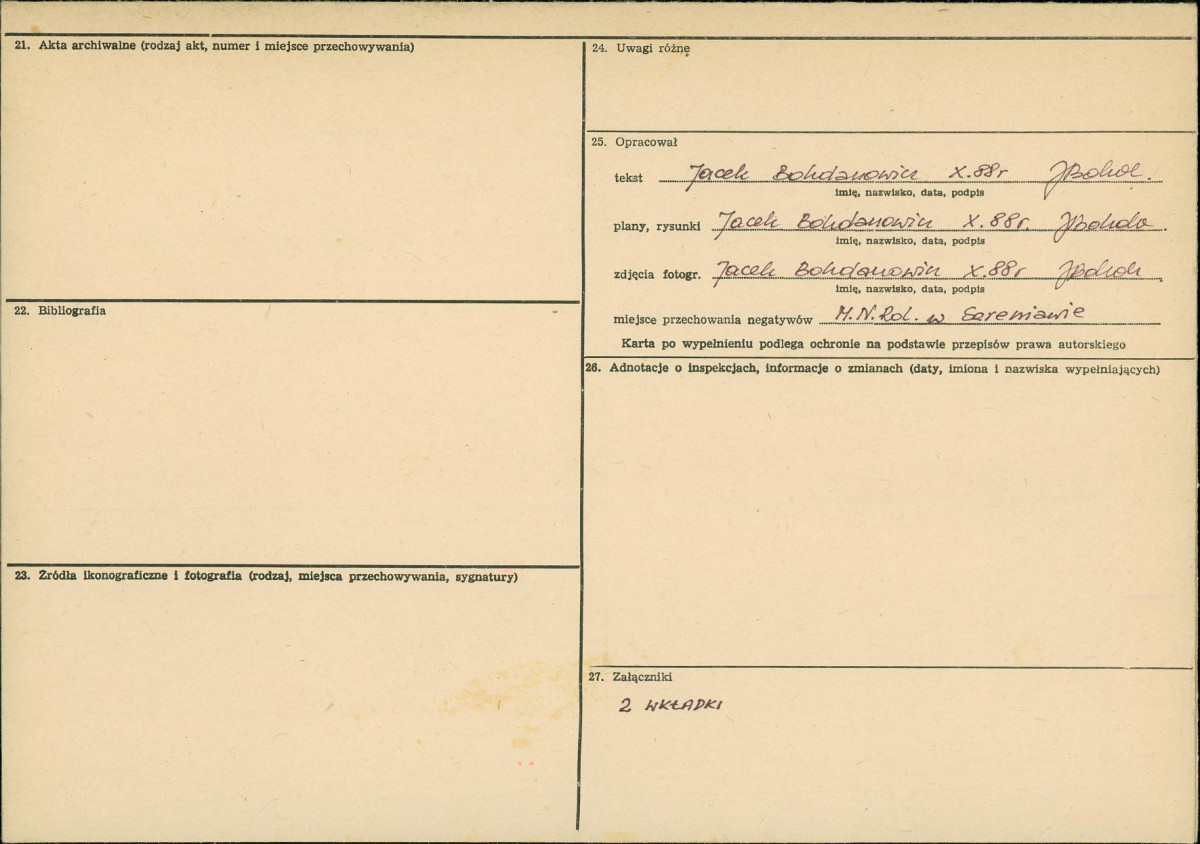 21. Akta archiwalne (rodzaj akt, numer i miejsce przechowywania)
22. Bibliografia
23. Źródła ikonograficzne i fotografia (rodzaj, miejsca przechowywania, sygnatury)
24. Uwagi różne
25. Opracował
tekst Jacek Bohdanowicz X.88r
imię, nazwisko, data, podpis
plany, rysunki Jacek Bohdanowicz X.88r.
imię, nazwisko, data, podpis
zdjęcia fotogr. Jacek Bohdanowicz X.88r
imię, nazwisko, data, podpis
miejsce przechowania negatywów M.N.Rol. w Szreniawie
Karta po wypełnieniu podlega ochronie na podstawie przepisów prawa autorskiego
26. Adnotacje o inspekcjach, informacje o zmianach (daty, imiona i nazwiska wypełniających)
27. Załączniki
2 WKŁADKI